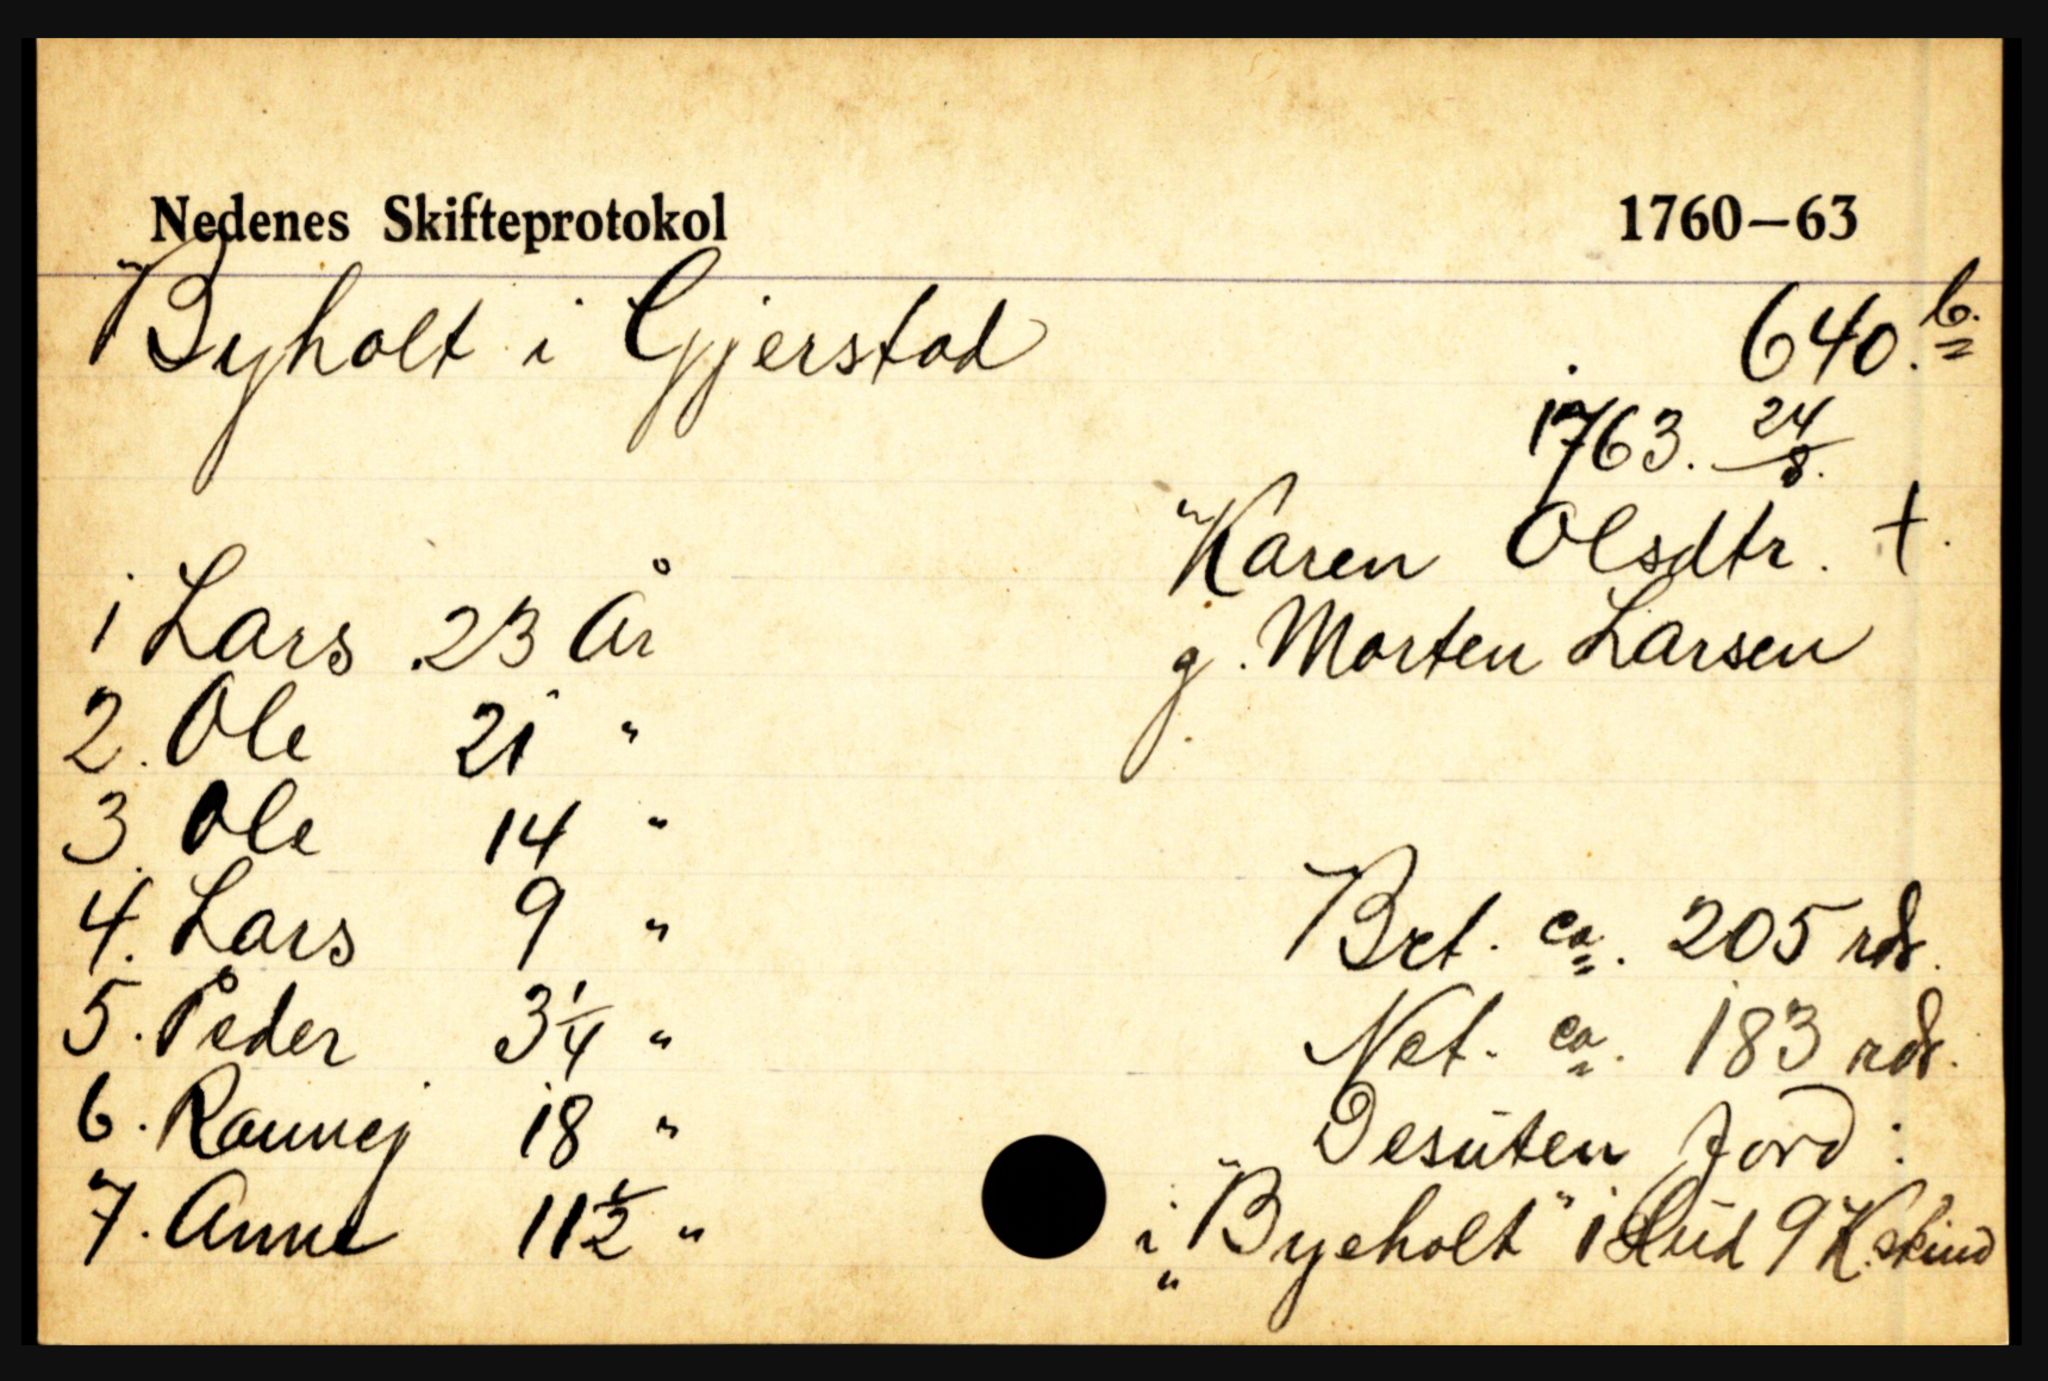 Nedenes Skifteprotokol 1760–63
Byholt i Gjerstad 640.b.
1763. 24/8.
Karen Olsdtr. †.
g. Morten Larsen
1 Lars 23 År
2. Ole 21 "
3. Ole 14 "
4. Lars 9 "
5. Peder 3 1/4 "
6. Rannej 18 "
7. Anne 11 1/2 "
Brt. ca. 205 rds.
Net. ca. 183 rds.
Desuten Jord:
i "Byeholt" 1 Hud 9 K.skind